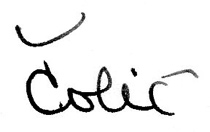 Čolić